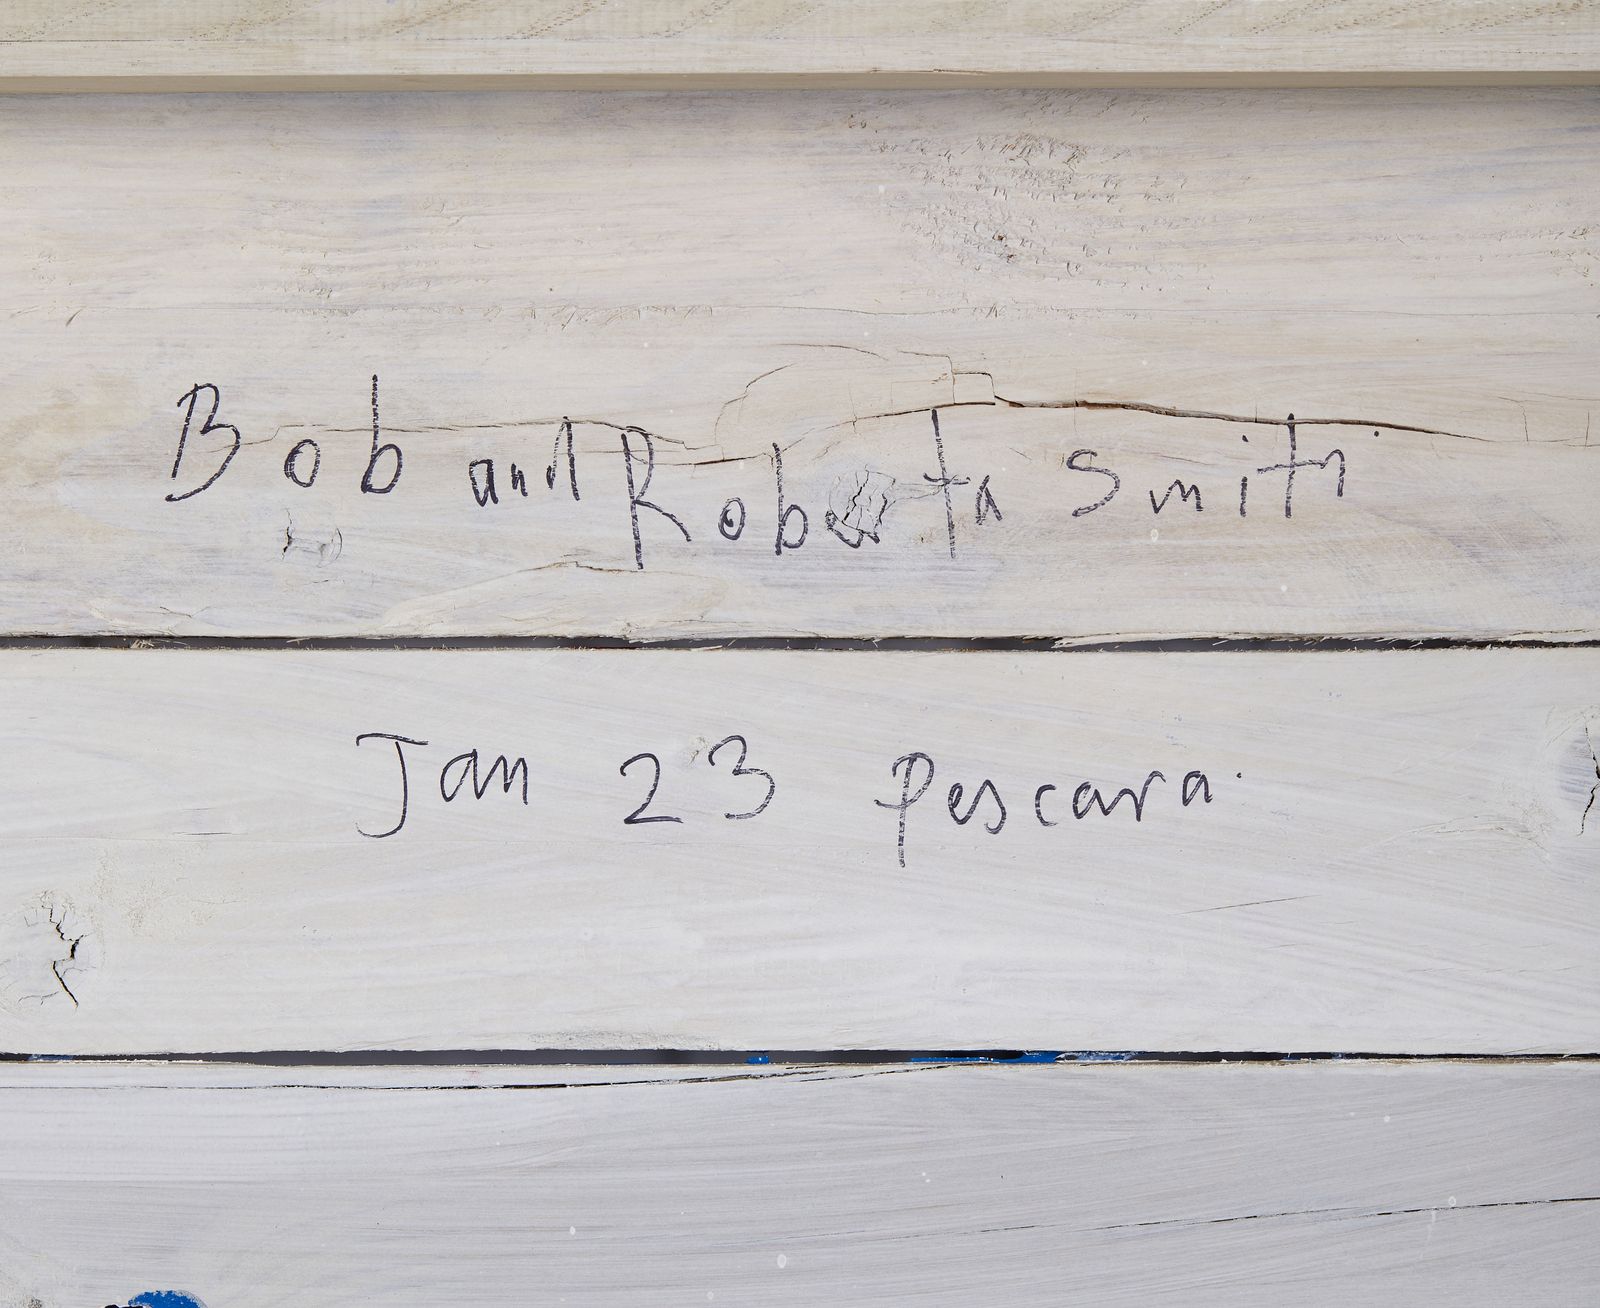 Bob and Roberta Smith
Jan 23 Pescara.